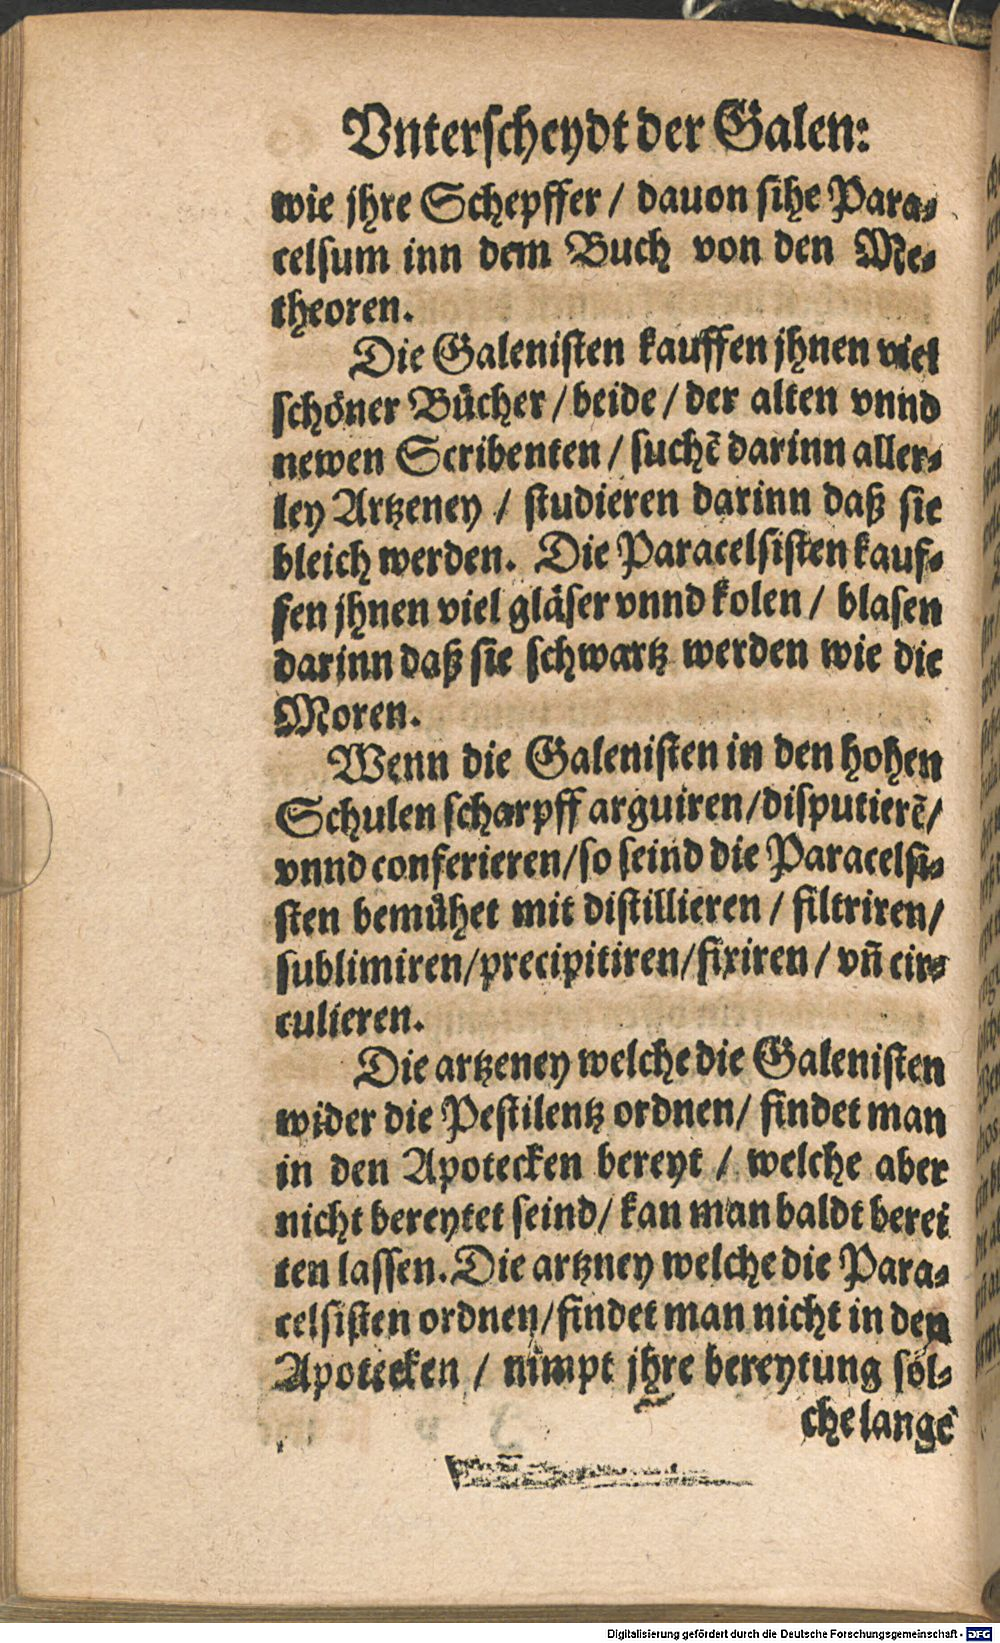 Vnterscheydt der Galen:
wie jhre Schepffer / dauon sihe Para⸗
celsum inn dem Buch von den Me⸗
theoren.
Die Galenisten kauffen jhnen viel
schöner Bücher / beide / der alten vnnd
newen Scribenten / suchẽ darinn aller⸗
ley Artzeney / studieren darinn daß sie
bleich werden. Die Paracelsisten kauf⸗
fen jhnen viel gläser vnnd kolen / blasen
darinn daß sie schwartz werden wie die
Moren.
Wenn die Galenisten in den hohen
Schulen scharpff arguiren/disputierẽ/
vnnd conferieren/so seind die Paracelsi⸗
sten bemühet mit distillieren / filtriren/
sublimiren/precipitiren/fixiren / vñ cir⸗
culieren.
Die artzeney welche die Galenisten
wider die Pestilentz ordnen/ findet man
in den Apotecken bereyt / welche aber
nicht bereytet seind/ kan man baldt berei
ten lassen. Die artzney welche die Para⸗
celsisten ordnen/findet man nicht in den
Apotecken / nimpt jhre bereytung söl⸗
che lange
Digitalisierung gefördert durch die Deutsche Forschungsgemeinschaft - DFG